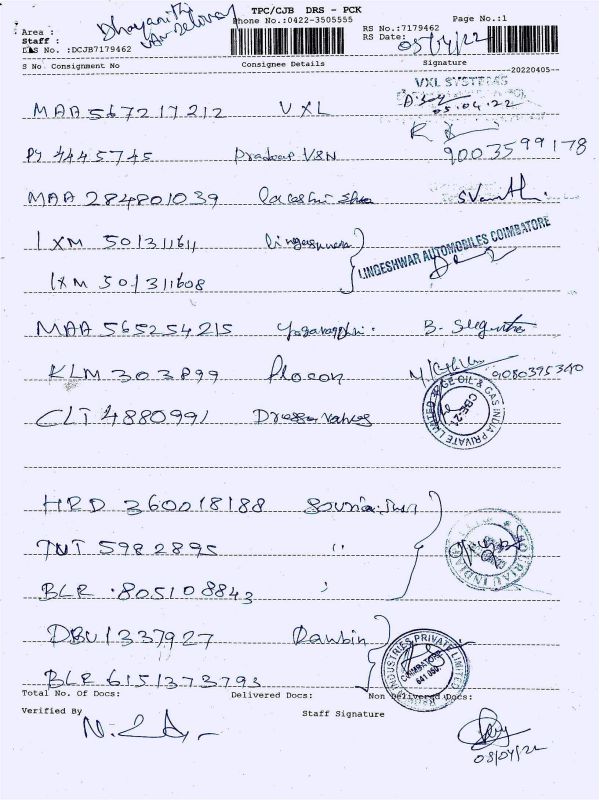 TPC/CJB DRS - PCK
Phone No.:0422-3505555
Page No.:1
Area :
Staff :
DRS No. :DCJB7179462
RS No.:7179462
RS Date:
05/04/22
S No Consignment No Consignee Details Signature
20220405
VXL SYSTEMS
MAA 567217212 VXL 05.04.22
PY 4445745 Pradeep VSN 9003599178
MAA 284801039
IXM 501311611 LINGESHWAR AUTOMOBILES COIMBATORE
IXM 501311608
MAA 565254215
KLM 303899 9080395340
CLT 4880991 GE OIL & GAS INDIA PRIVATE LIMITED
HRD 360018188
TNT 5982895 "
BLR 805108843 "
DBU 1337927
BLR 6151373793 INDUSTRIES PRIVATE LIMITED COIMBATORE
Total No. Of Docs: Delivered Docs: Non Delivered Docs:
Verified By Staff Signature
05/04/22